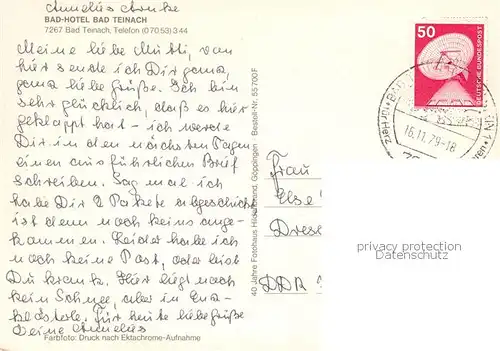 Annelies
BAD-HOTEL BAD TEINACH
7267 Bad Teinach, Telefon (07053) 344
Meine liebe Mutti, von
hier sende ich Dir ganz,
ganz liebe Grüße. Ich bin
sehr glücklich, daß es hier
geklappt hat - ich werde
Dir in den nächsten Tagen
einen ausführlichen Brief
schreiben. Sag mal, ich
habe Dir 2 Pakete abgeschickt
ist denn noch keins ange-
kommen. Leider habe ich
noch keine Post, oder bist
Du krank. Hier liegt noch
kein Schnee, aber in Enz-
klösterle. Für heute liebe Grüße
Deine Annelies
Farbfoto: Druck nach Ektachrome-Aufnahme
40 Jahre Fotohaus Göppingen Bestell-Nr. 55700F
50
DEUTSCHE BUNDESPOST
16.11.79-18
für Herz
Frau
Else
Dres
DDR
privacy protection
watermark